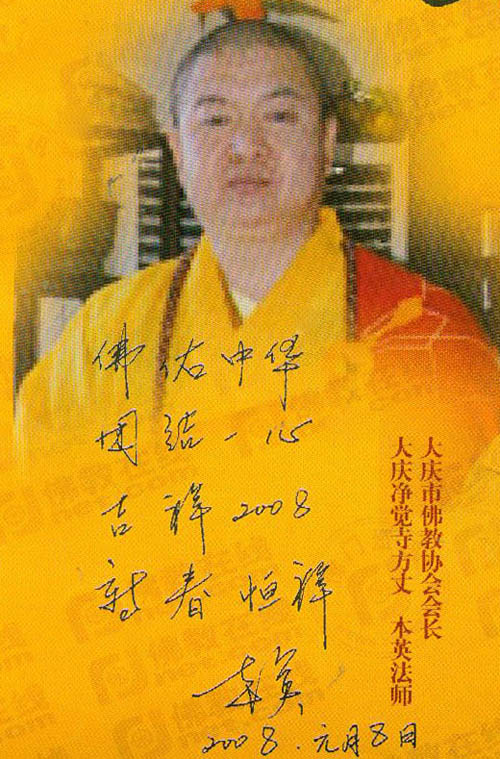 佛佑中华
团结一心
吉祥2008
新春恒祥
本英
2008.元月8日
大庆市佛教协会会长
大庆净觉寺方丈 本英法师